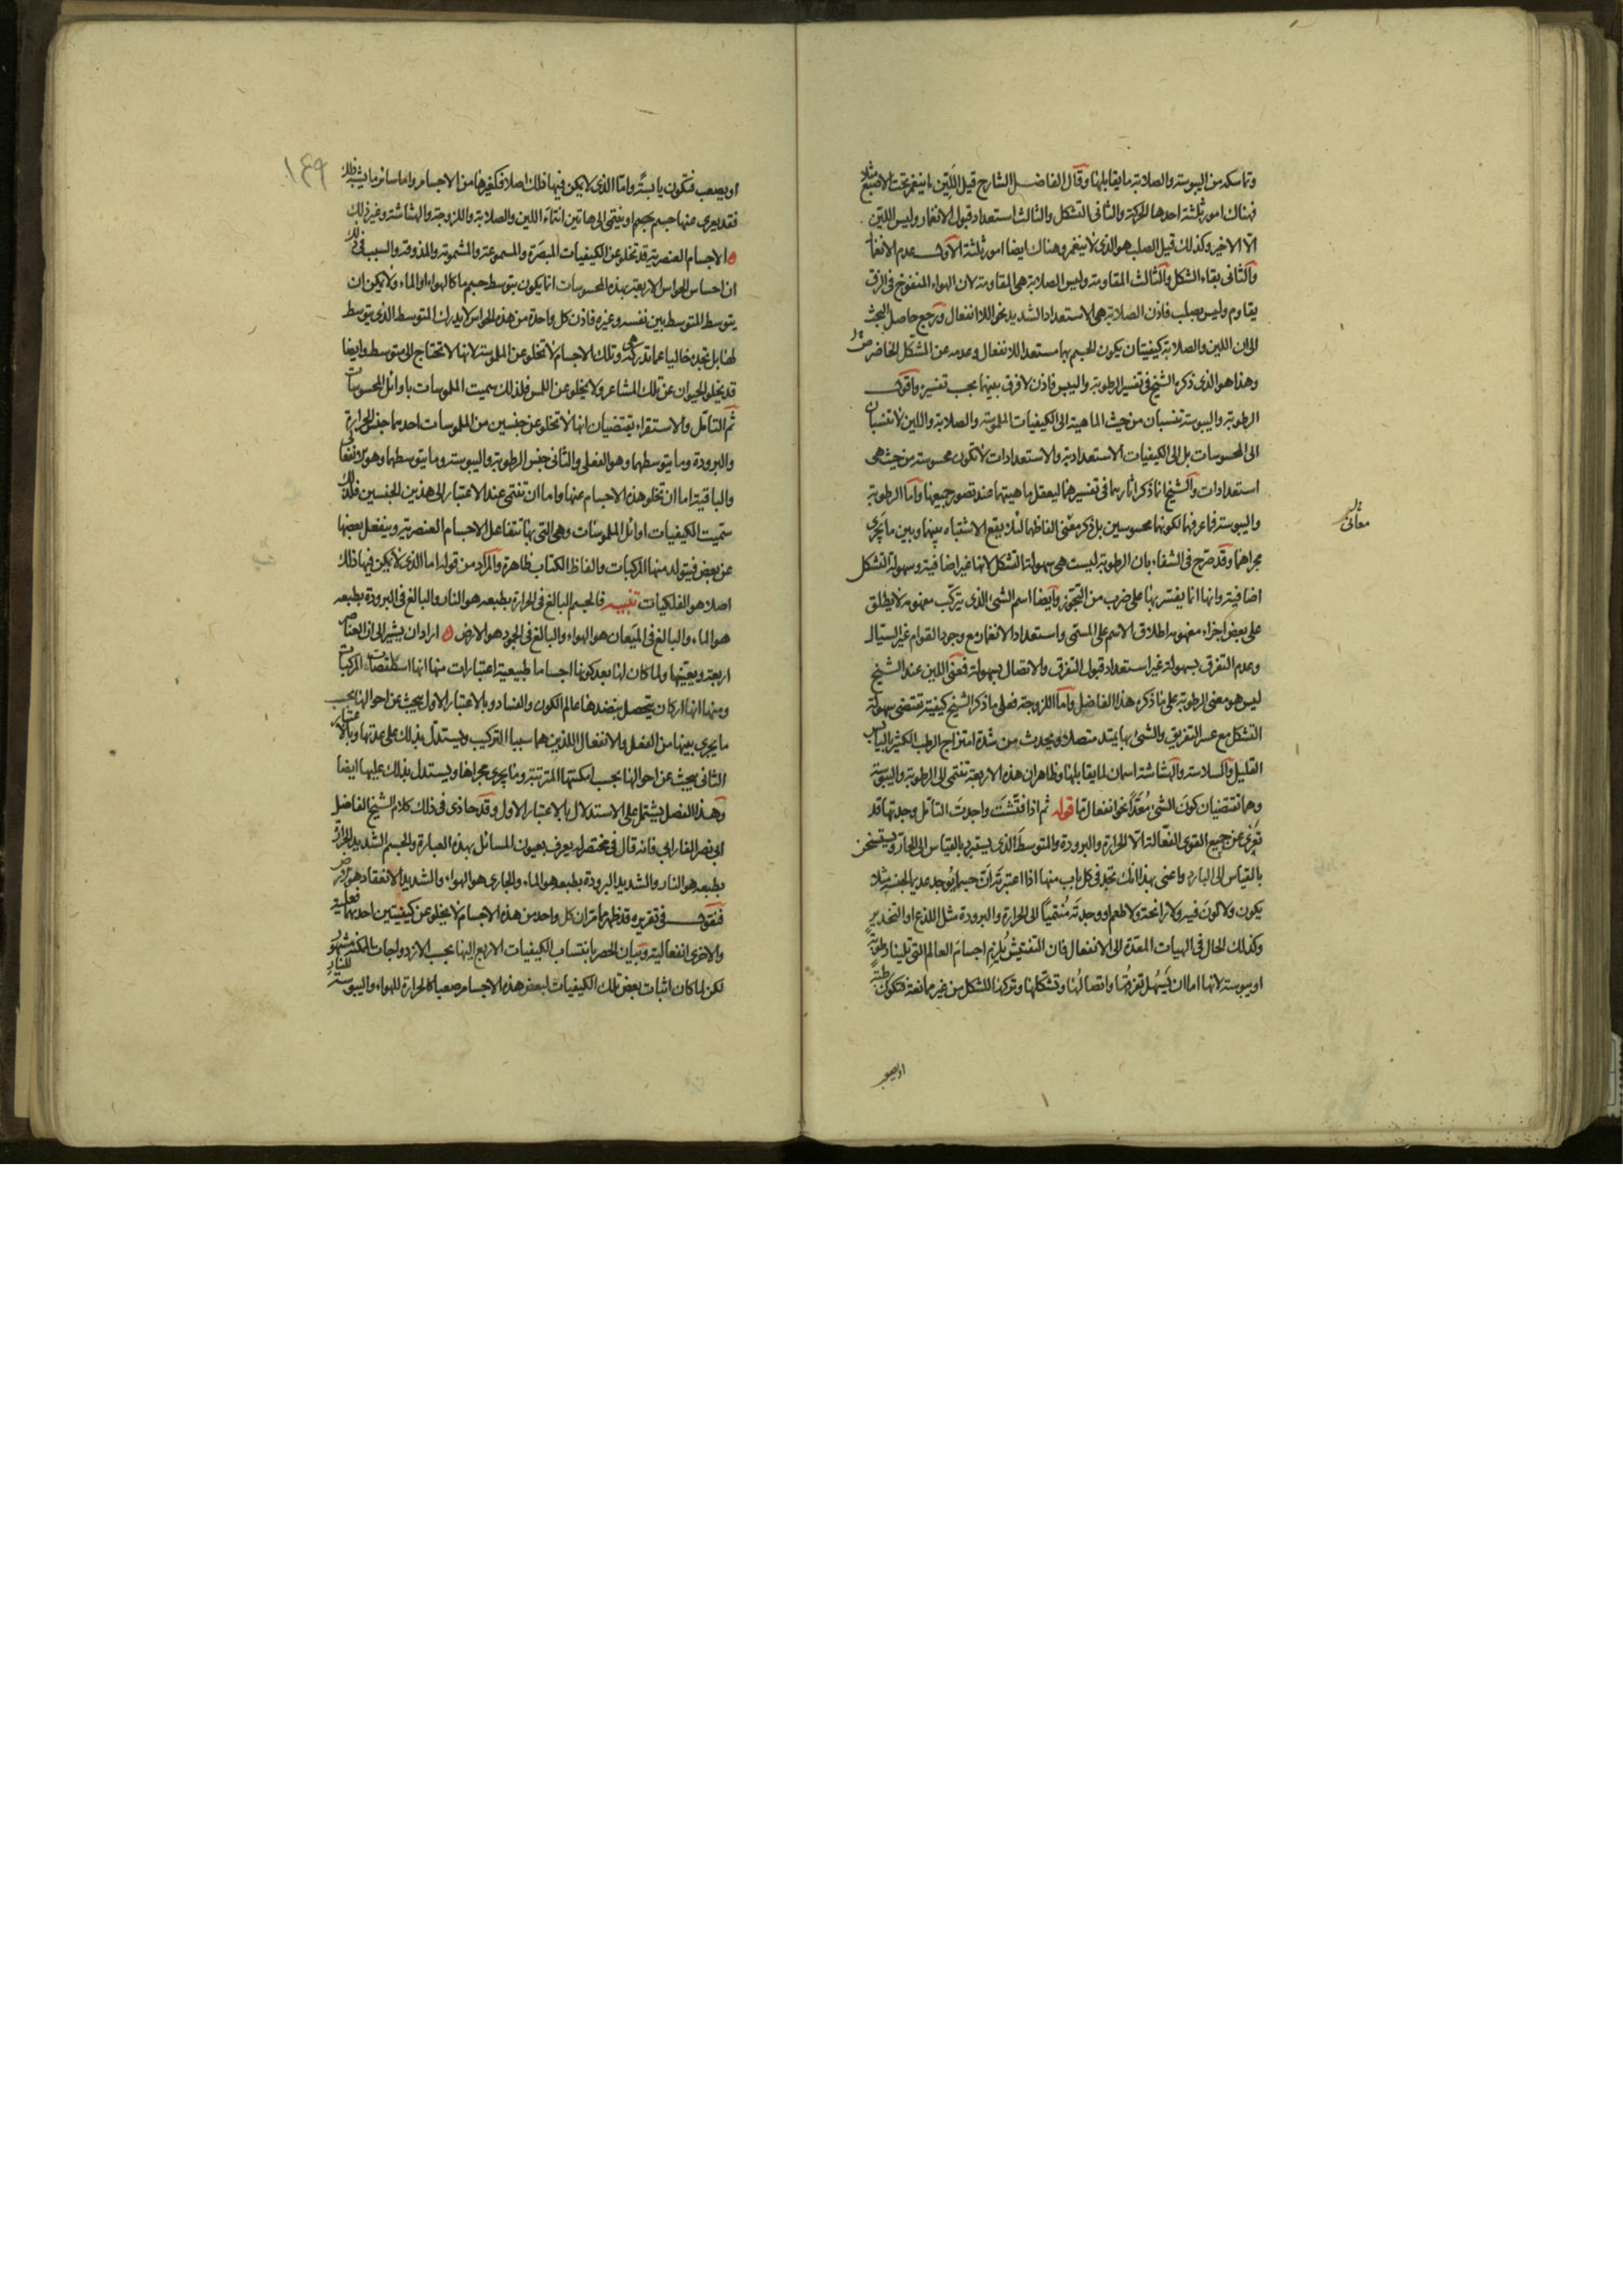 وتماسكه من اليبوسة والصلابة ما يقابلهنا وقال الفاضل الشارح قيل اللين ما ينغمز تحت الاصبع مثلا
فهناك امور ثلثة احدها الحركة والثانى التشكل والثالث استعداد قبول الانغمار وليس اللين
الا الاخير وكذلك قيل الصلب هو الذى لا ينغمر وهناك ايضا امور ثلثة الاول عدم الانغمار
والثانى بقاء الشكل والثالث المقاومة وليس الصلابة هى المقاومة لان الهواء المنفوخ فى الزق
يقاوم وليس بصلب فاذن الصلابة هى الاستعداد الشديد نحو اللاانفعال ورجع حاصل البحث
الى ان اللين والصلابة كيفيتان يكون الجسم بهما مستعدا للانفعال وعدمه عن المشكل الحاضر
وهذا هو الذى ذكره الشيخ فى تفسير الرطوبة واليبس فاذن لا فرق بينهما بحسب تفسيره واقول
الرطوبة واليبوسة تنسبان من حيث الماهية الى الكيفيات الملموسة والصلابة واللين لا تنسبان
الى المحسوسات بل الى الكيفيات الاستعدادية والاستعدادات لا تكون محسوسة من حيث هى
استعدادات والشيخ انما ذكر اثارهما فى تفسيرهما ليعقل ماهيتهما عند تصور جميعها واما الرطوبة
واليبوسة فلم يعرفهما لكونهما محسوسين بل ذكر معنى الفاظهما لئلا يقع الاشتباه بينهما وبين ما يجرى
معانى
مجراهما وقد صرح فى الشفاء بان الرطوبة ليست هى سهولة التشكل لانها غير اضافية وسهولة التشكل
اضافية وانها انما يفسر بها على ضرب من التجوز وايضا اسم الشئ الذى يتركب مفهومه لا يطلق
على بعض اجزاء مفهومه اطلاق الاسم على المسمى واستعداد الانغمار مع وجود القوام غير السيال
وعدم التفرق بسهولة غير استعداد قبول التفرق والاتصال بسهولة فمعنى اللين عند الشيخ
ليس هو معنى الرطوبة على ما ذكره هذا الفاضل واما اللزوجة فعلى ما ذكر الشيخ كيفية تقتضى سهولة
التشكل مع عسر التفريق والشئ بها يمتد متصلا ويحدث من شدة امتزاج الرطب الكثير باليابس
القليل والسلاسة والهشاشة اسمان لما يقابلها وظاهر ان هذه الاربعة تنتمى الى الرطوبة واليبوسة
وهما تقتضيان كون الشئ معدا نحو انفعال ما قوله ثم اذا فتشت واجدت التامل وجدتها قد
تعرى عن جميع القوى الفعالة الا الحرارة والبرودة والمتوسط الذى يستبرد بالقياس الى الحار ويستسخن
بالقياس الى البارد واعنى بهذا انك تجد فى كل باب منها اذا اعتبرته ان جسما يوجد عديما لجنسه مثلا
يكون ولا لون فيه ولا رائحة ولا طعم او وجدته منتميا الى الحرارة والبرودة مثل اللذع او التخدير
وكذلك الحال فى الهيات المعدة الى الانفعال فان التفتيش يلزم اجسام العالم التى تلينا رطوبة
او يبوسة لانها اما ان يسهل تفرقها واتصالها وتشكلها وتركها للشكل من غير ممانعة فتكون رطبة
او يصعب
١٤٩
او يصعب فتكون يابسة واما الذى لا يمكن فيها ذلك اصلا فكغيرها من الاجسام واما سائر ما يشبه ذلك
فقد يعرى عنها جسم جسم او ينتمى الى هاتين انتماء اللين والصلابة واللزوجة والهشاشة وغير ذلك
ه الاجسام العنصرية قد تخلو عن الكيفيات المبصرة والمسموعة والمشمومة والمذوقة والسبب فى ذلك
ان احساس الحواس الاربعة بهذه المحسوسات انما يكون بتوسط جسم ما كالهواء او الماء ولا يمكن ان
يتوسط المتوسط بين نفسه وغيره فاذن كل واحدة من هذه الحواس لا يدرك المتوسط الذى يتوسط
لها بل تجده خاليا عما تدركه هى وتلك الاجسام لا تخلو عن الملموسة لانها لا تحتاج الى متوسط وايضا
قد يخلو الحيوان عن تلك المشاعر ولا يخلو عن اللمس فلذلك سميت الملموسات باوائل المحسوسات
ثم التامل والاستقراء يقتضيان انها لا تخلو عن جنسين من الملموسات احدهما جنس الحرارة
والبرودة وما يتوسطهما وهو الفعلى والثانى جنس الرطوبة واليبوسة وما يتوسطهما وهو الانفعالى
والباقية اما ان تخلو هذه الاجسام عنها واما ان تنتمى عند الاعتبار الى هذين الجنسين فلذلك
سميت الكيفيات اوائل الملموسات وهى التى بها تتفاعل الاجسام العنصرية وينفعل بعضها
عن بعض فيتولد منها المركبات والفاظ الكتاب ظاهرة والمراد من قوله اما الذى لا يمكن فيها ذلك
اصلا هو الفلكيات تنبيه فالجسم البالغ فى الحرارة بطبعه هو النار والبالغ فى البرودة بطبعه
هو الماء والبالغ فى الميعان هو الهواء والبالغ فى الجمود هو الارض ه اراد ان يشير الى ان العناصر
اربعة ويعينها ولما كان لها بعد كونها اجساما طبيعية اعتبارات منها انها اسطقصات المركبات
ومنها انها اركان يتحصل بنضدها عالم الكون والفساد وبالاعتبار الاول يبحث عن احوالها بحسب
ما يجرى بينها من الفعل والانفعال اللذين هما سببا التركيب ويستدل بذلك على عدتها وبالاعتبار
الثانى يبحث عن احوالها بحسب امكنتها المترتبة وما يجرى مجراها ويستدل بذلك عليها ايضا
وهذا الفصل يشتمل على الاستدلال بالاعتبار الاول وقد حاذى فى ذلك كلام الشيخ الفاضل
ابى نصر الفارابى فانه قال فى مختصر له يعرف بعيون المسائل بهذه العبارة والجسم الشديد الحرارة
بطبعه هو النار والشديد البرودة بطبعه هو الماء والجارى هو الهواء والشديد الانعقاد هو الارض
فنقول فى تقريره قد ظهر مما مر ان كل واحد من هذه الاجسام لا يخلو عن كيفيتين احدهما فعلية
والاخرى انفعالية وبيان الحصر بانتساب الكيفيات الاربع اليها بحسب الازدواجات الممكنة مشهور
لكن لما كان اثبات بعض تلك الكيفيات لبعض هذه الاجسام صعبا كالحرارة للهواء واليبوسة للنار